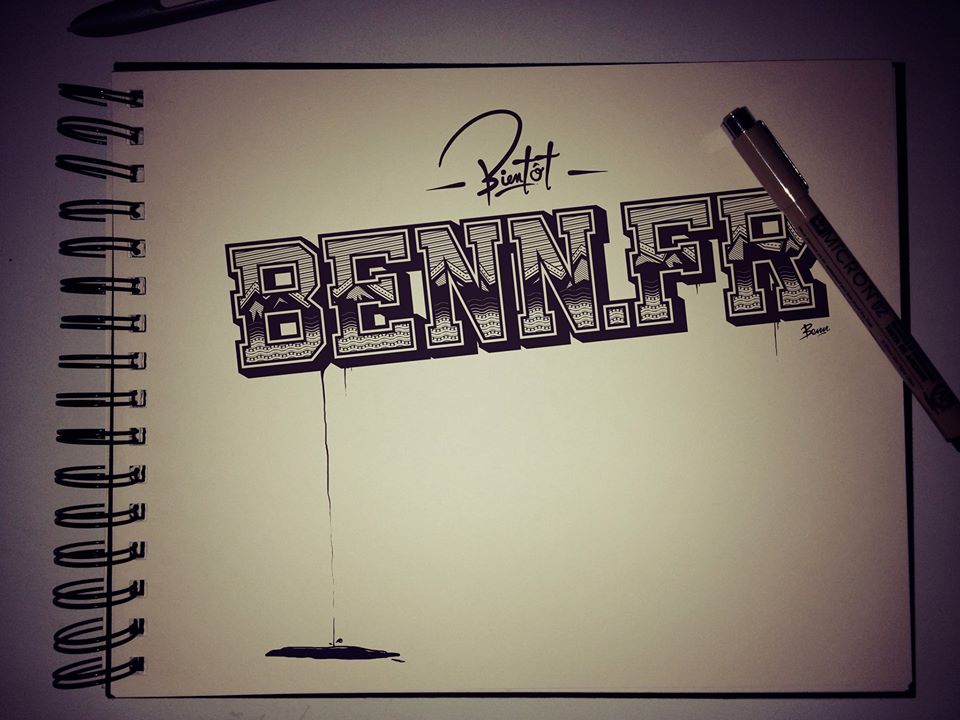 Bientôt
BENN.FR
Benn
MICRON 02